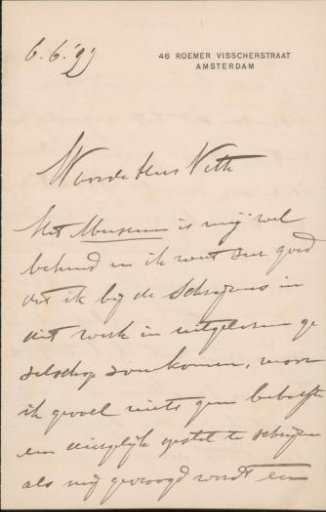 6.6.'97
46 ROEMER VISSCHERSTRAAT
AMSTERDAM
Waarde Heer Veth
Het Museum is mij wel
bekend en ik weet zeer goed
dat ik bij de schrijvers in
dit werk in uitgelezen ge
zelschap zou komen, maar
ik gevoel niets geen behoefte
een dergelijk opstel te schrijven
als mij gevraagd wordt en